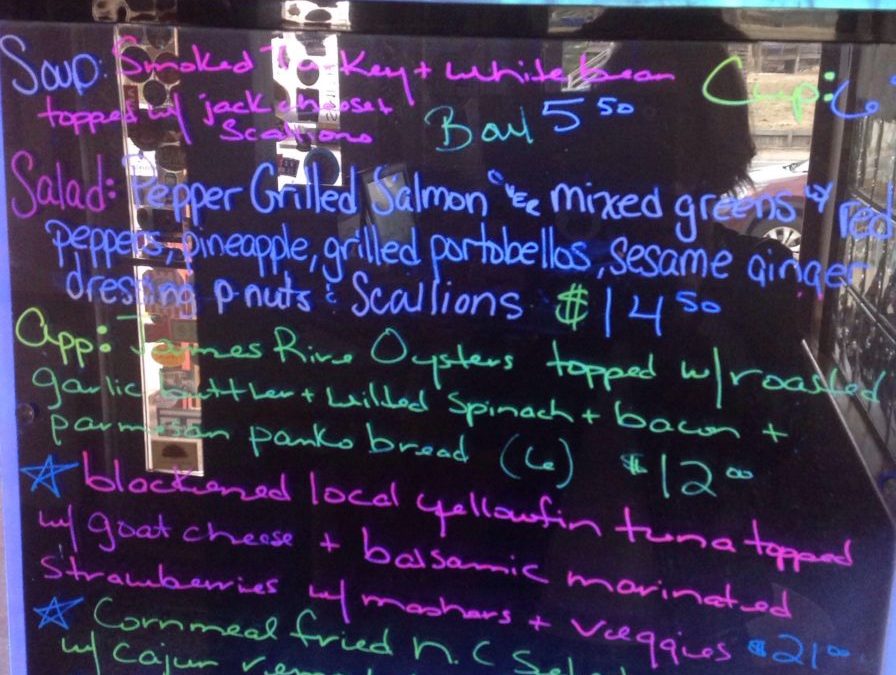 Soup: Smoked Turkey + white bean Cup: 6
topped w/ jack cheese + Scallions Bowl 5 50
Salad: Pepper Grilled Salmon over mixed greens w/ red
peppers, pineapple, grilled portobellos, sesame ginger
dressing p-nuts & Scallions $14 50
App: James River Oysters topped w/ roasted
garlic buttter + wilted Spinach + bacon +
parmesan panko bread (6) $12 00
☆ blackened local yellowfin tuna topped
w/ goat cheese + balsamic marinated
strawberries w/ mashers + veggies $21 00
☆ Cornmeal fried n.c
w/ Cajun